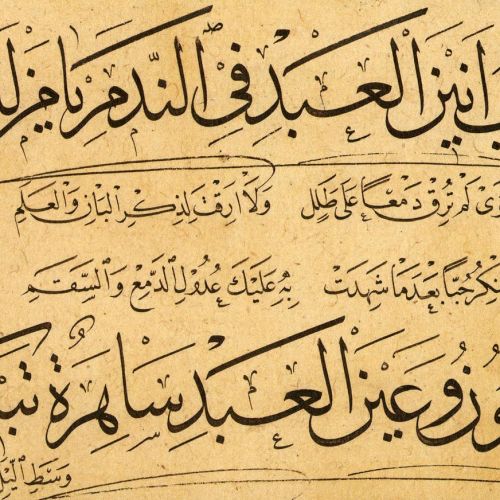 انين العبد في الندم يا من
لَمْ تُرِقْ دَمْعًا عَلَىٰ طَلَلٍ وَلَا اَرِقْتَ لِذِكْرِ الْبَانِ وَالْعَلَمِ
تُنْكِرُ حُبًّا بَعْدَ مَا شَهِدَتْ بِهِ عَلَيْكَ عُدُولُ الدَّمْعِ وَالسَّقَمِ
وعين العبد ساهرة
وَسَطِ اللَّيْلِ